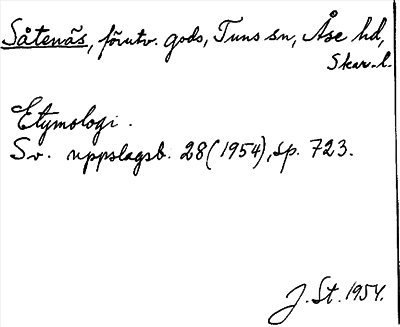 Såtenäs, förutv. gods, Tuns sn, Åse hd,
Skar. l.
Etymologi.
Sv. uppslagsb. 28 (1954), sp. 723.
J. St. 1954.